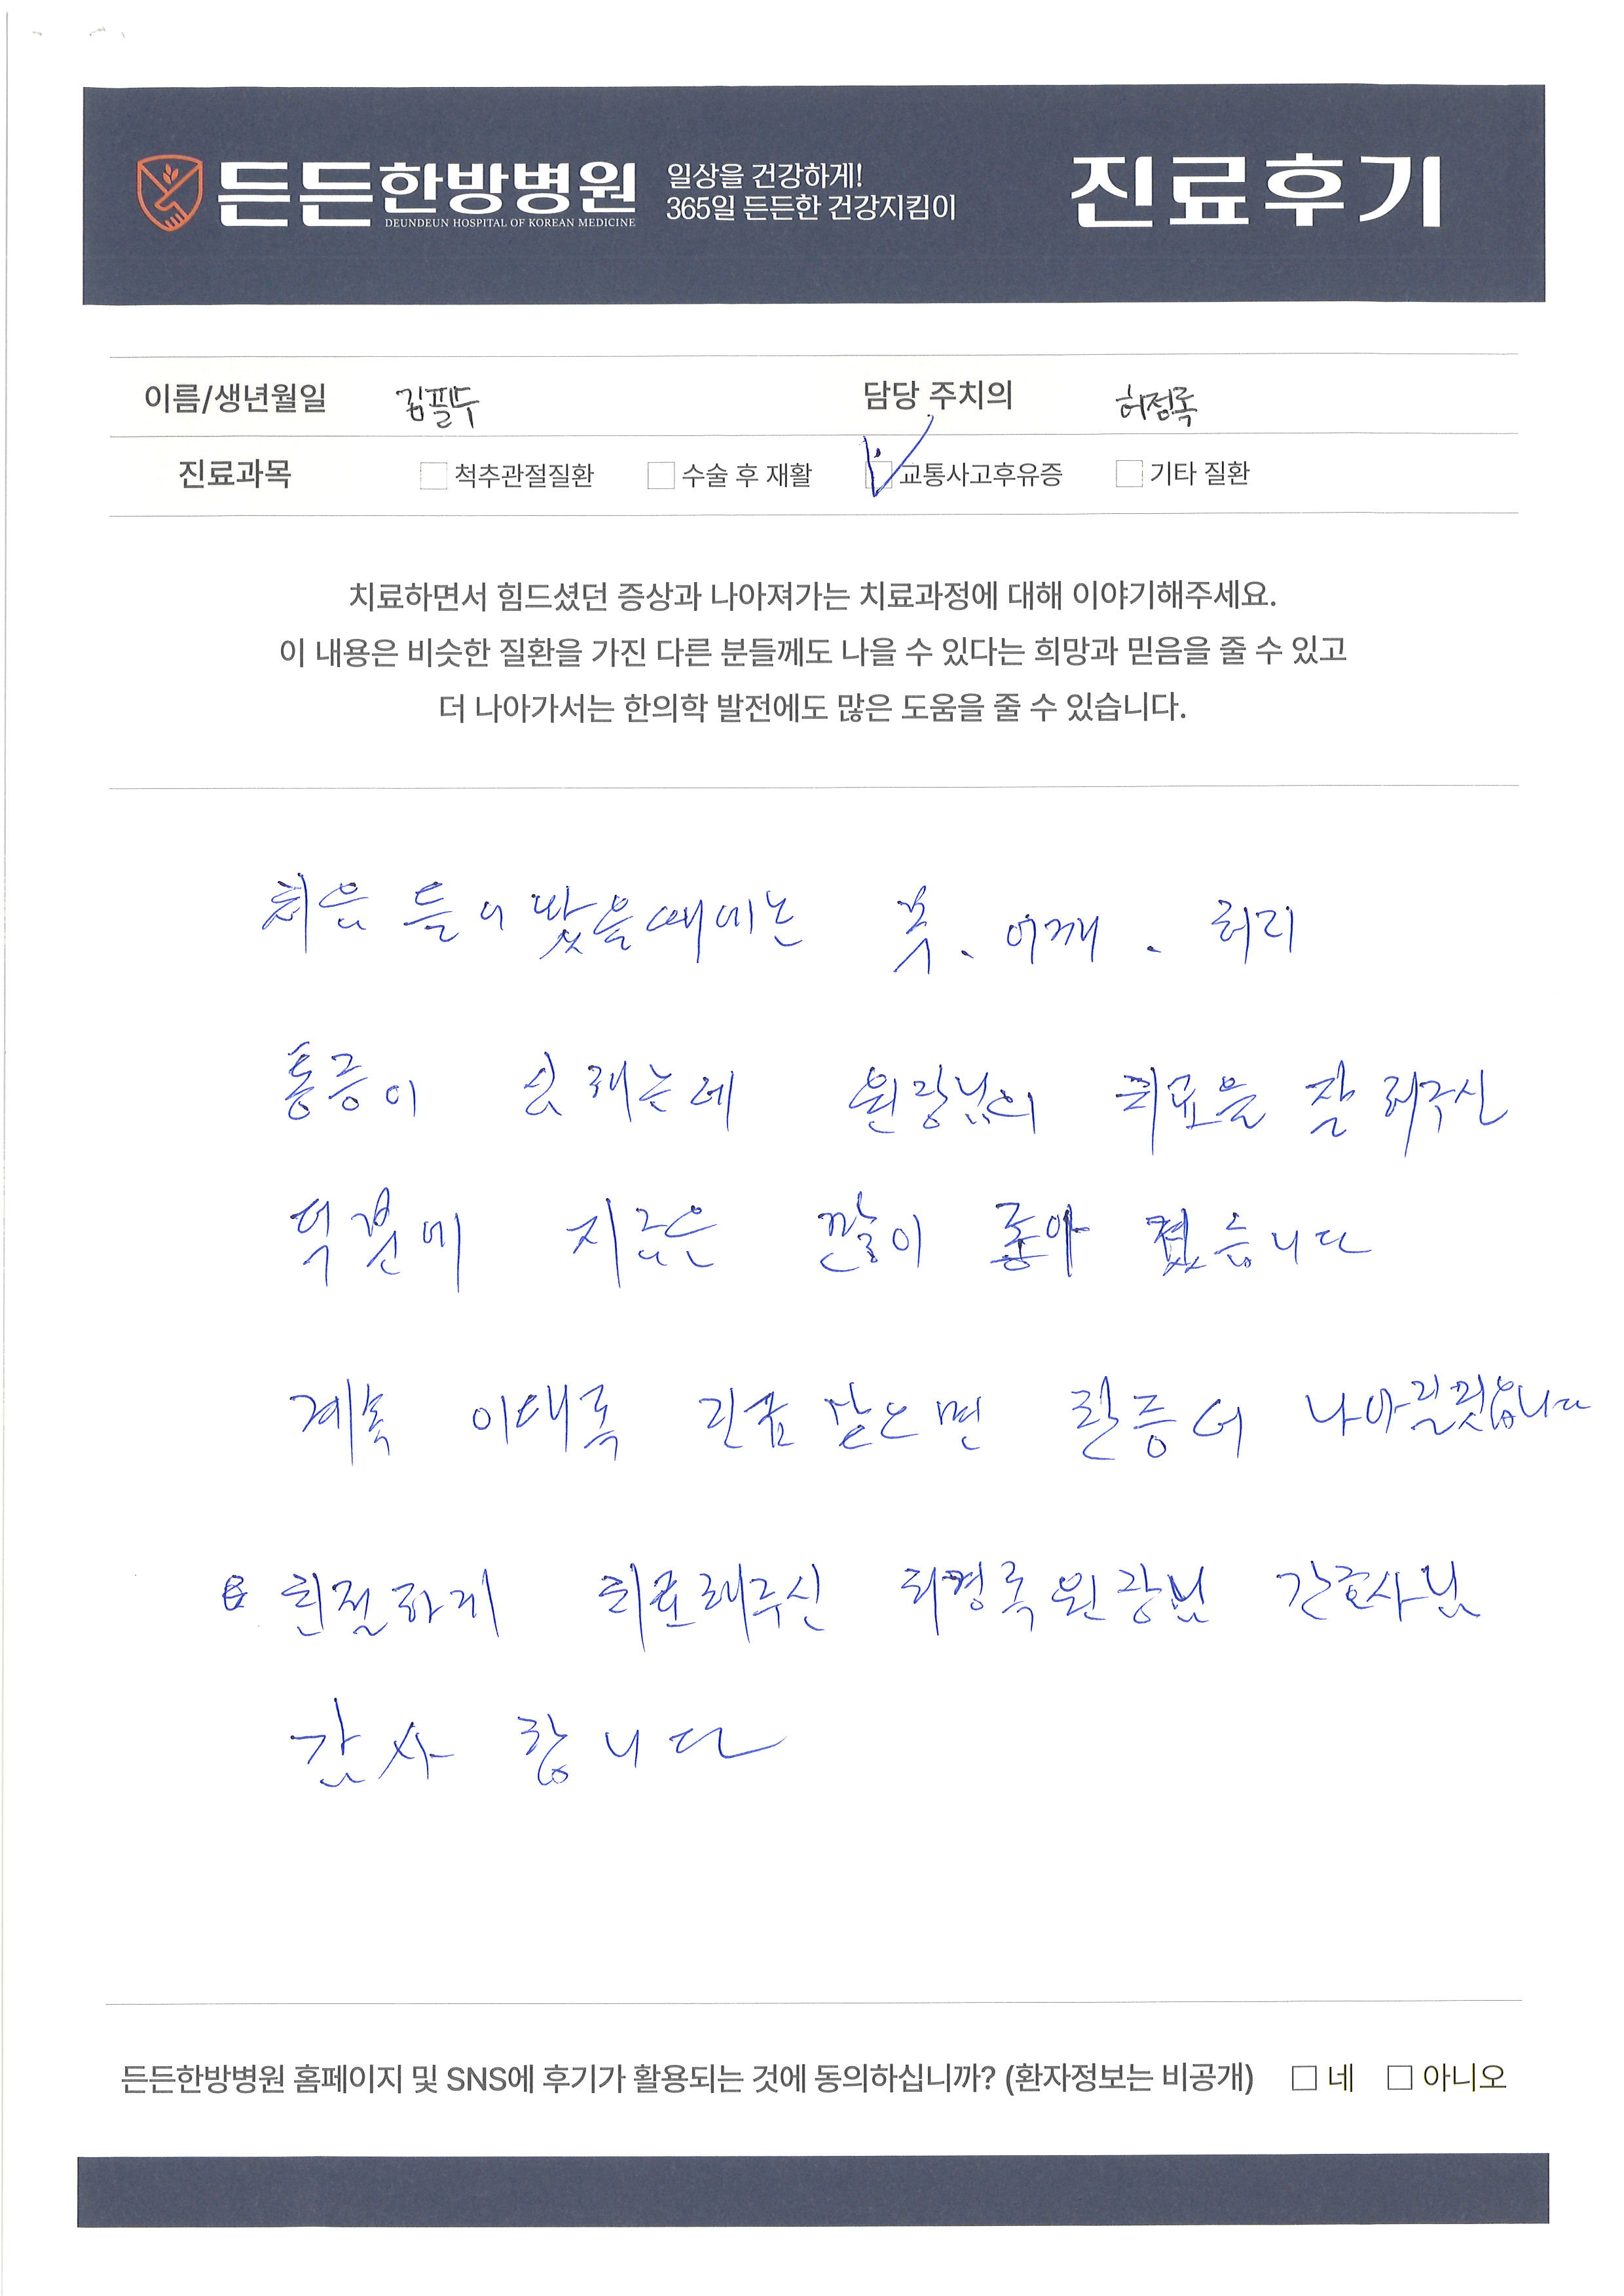 든든한방병원
DEUNDEUN HOSPITAL OF KOREAN MEDICINE
일상을 건강하게!
365일 든든한 건강지킴이
진료후기
이름/생년월일 김필두 담당 주치의 허정록
진료과목 척추관절질환 수술 후 재활 교통사고후유증 기타 질환
치료하면서 힘드셨던 증상과 나아져가는 치료과정에 대해 이야기해주세요.
이 내용은 비슷한 질환을 가진 다른 분들께도 나을 수 있다는 희망과 믿음을 줄 수 있고
더 나아가서는 한의학 발전에도 많은 도움을 줄 수 있습니다.
처음 들어 왔을때에는 목. 어깨. 허리
통증이 원장님의 치료을 잘 해주신
덕분에 지금은 많이 좋아 졌습니다
계속 이대록 더
친절하게 치료해주신 허정록원장님 간호사님
감사 합니다
든든한방병원 홈페이지 및 SNS에 후기가 활용되는 것에 동의하십니까? (환자정보는 비공개) 네 아니오